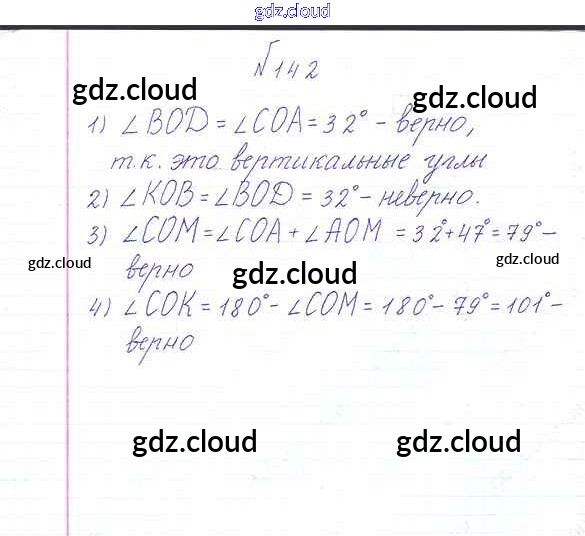 gdz.cloud
№142
gdz.cloud gdz.cloud
1) ∠BOD = ∠COA = 32° - верно,
т.к. это вертикальные углы
2) ∠KOB = ∠BOD = 32° - неверно.
3) ∠COM = ∠COA + ∠AOM = 32°+47° = 79° -
gdz.cloud gdz.cloud gdz.cloud
верно
4) ∠COK = 180° - ∠COM = 180° - 79° = 101° -
верно
gdz.cloud gdz.cloud